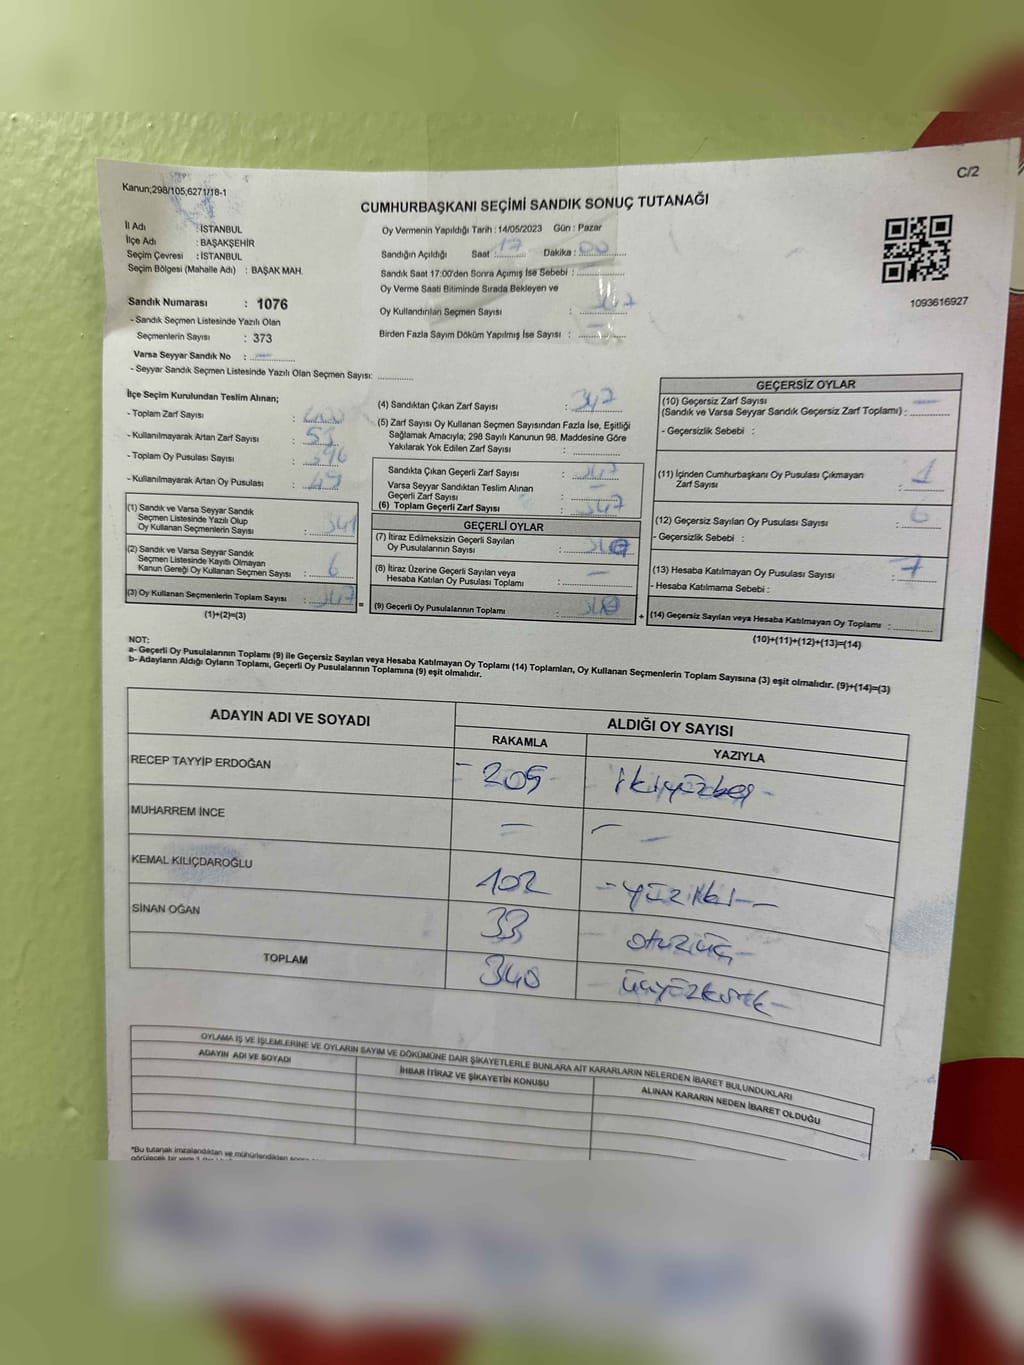 Kanun;298/105,6271/18-1
C/2
CUMHURBAŞKANI SEÇİMİ SANDIK SONUÇ TUTANAĞI
İl Adı : İSTANBUL
İlçe Adı : BAŞAKŞEHİR
Seçim Çevresi : İSTANBUL
Seçim Bölgesi (Mahalle Adı) : BAŞAK MAH.
Sandık Numarası : 1076
- Sandık Seçmen Listesinde Yazılı Olan
Seçmenlerin Sayısı : 373
Varsa Seyyar Sandık No : —
- Seyyar Sandık Seçmen Listesinde Yazılı Olan Seçmen Sayısı:
Oy Vermenin Yapıldığı Tarih : 14/05/2023 Gün : Pazar
Sandığın Açıldığı Saat : 17 Dakika : 00
Sandık Saat 17:00'den Sonra Açımış İse Sebebi :
Oy Verme Saati Bitiminde Sırada Bekleyen ve
Oy Kullandırılan Seçmen Sayısı : 347
Birden Fazla Sayım Döküm Yapılmış İse Sayısı : —
1093616927
İlçe Seçim Kurulundan Teslim Alınan;
- Toplam Zarf Sayısı : 400
- Kullanılmayarak Artan Zarf Sayısı : 53
- Toplam Oy Pusulası Sayısı : 396
- Kullanılmayarak Artan Oy Pusulası : 49
(1) Sandık ve Varsa Seyyar Sandık
Seçmen Listesinde Yazılı Olup
Oy Kullanan Seçmenlerin Sayısı : 341
(2) Sandık ve Varsa Seyyar Sandık
Seçmen Listesinde Kayıtlı Olmayan
Kanun Gereği Oy Kullanan Seçmen Sayısı : 6
(3) Oy Kullanan Seçmenlerin Toplam Sayısı : 347
(1)+(2)=(3)
(4) Sandıktan Çıkan Zarf Sayısı : 347
(5) Zarf Sayısı Oy Kullanan Seçmen Sayısından Fazla İse, Eşitliği
Sağlamak Amacıyla; 298 Sayılı Kanunun 98. Maddesine Göre
Yakılarak Yok Edilen Zarf Sayısı :
Sandıkta Çıkan Geçerli Zarf Sayısı : 347
Varsa Seyyar Sandıktan Teslim Alınan
Geçerli Zarf Sayısı : —
(6) Toplam Geçerli Zarf Sayısı : 347
GEÇERLİ OYLAR
(7) İtiraz Edilmeksizin Geçerli Sayılan
Oy Pusulalarının Sayısı : 340
(8) İtiraz Üzerine Geçerli Sayılan veya
Hesaba Katılan Oy Pusulası Toplamı : —
= (9) Geçerli Oy Pusulalarının Toplamı : 340
GEÇERSİZ OYLAR
(10) Geçersiz Zarf Sayısı
(Sandık ve Varsa Seyyar Sandık Geçersiz Zarf Toplamı) : —
- Geçersizlik Sebebi :
(11) İçinden Cumhurbaşkanı Oy Pusulası Çıkmayan
Zarf Sayısı : 1
(12) Geçersiz Sayılan Oy Pusulası Sayısı : 6
- Geçersizlik Sebebi :
(13) Hesaba Katılmayan Oy Pusulası Sayısı : 7
- Hesaba Katılmama Sebebi :
+ (14) Geçersiz Sayılan veya Hesaba Katılmayan Oy Toplamı :
(10)+(11)+(12)+(13)=(14)
NOT:
a- Geçerli Oy Pusulalarının Toplamı (9) ile Geçersiz Sayılan veya Hesaba Katılmayan Oy Toplamı (14) Toplamları, Oy Kullanan Seçmenlerin Toplam Sayısına (3) eşit olmalıdır. (9)+(14)=(3)
b- Adayların Aldığı Oyların Toplamı, Geçerli Oy Pusulalarının Toplamına (9) eşit olmalıdır.
ADAYIN ADI VE SOYADI ALDIĞI OY SAYISI
RAKAMLA YAZIYLA
RECEP TAYYİP ERDOĞAN - 205 - ikiyüzbeş -
MUHARREM İNCE — — —
KEMAL KILIÇDAROĞLU 102 - yüziki - -
SİNAN OĞAN 33 - otuzüç -
TOPLAM 340 - üçyüzkırk -
OYLAMA İŞ VE İŞLEMLERİNE VE OYLARIN SAYIM VE DÖKÜMÜNE DAİR ŞİKAYETLERLE BUNLARA AİT KARARLARIN NELERDEN İBARET BULUNDUKLARI
ADAYIN ADI VE SOYADI İHBAR İTİRAZ VE ŞİKAYETİN KONUSU ALINAN KARARIN NEDEN İBARET OLDUĞU
*Bu tutanak imzalandıktan ve mühürlendikten sonra